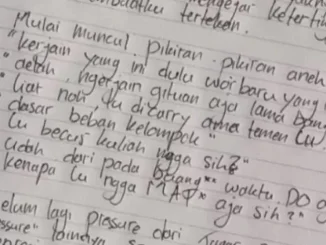 ngejar keterting
buatku tertekan.
Mulai muncul pikiran-pikiran aneh
"kerjain yang ini dulu woi baru yang
"aelah, ngerjain gituan aja lama bang
"liat noh, lu dicarry ama temen lu
dasar beban kelompok"
"lu becus kuliah ngga sih?"
"udah dari pada buang** waktu. DO
kenapa lu ngga MAT* aja sih?"
elum lagi pressure dari
ssure" lainnya s